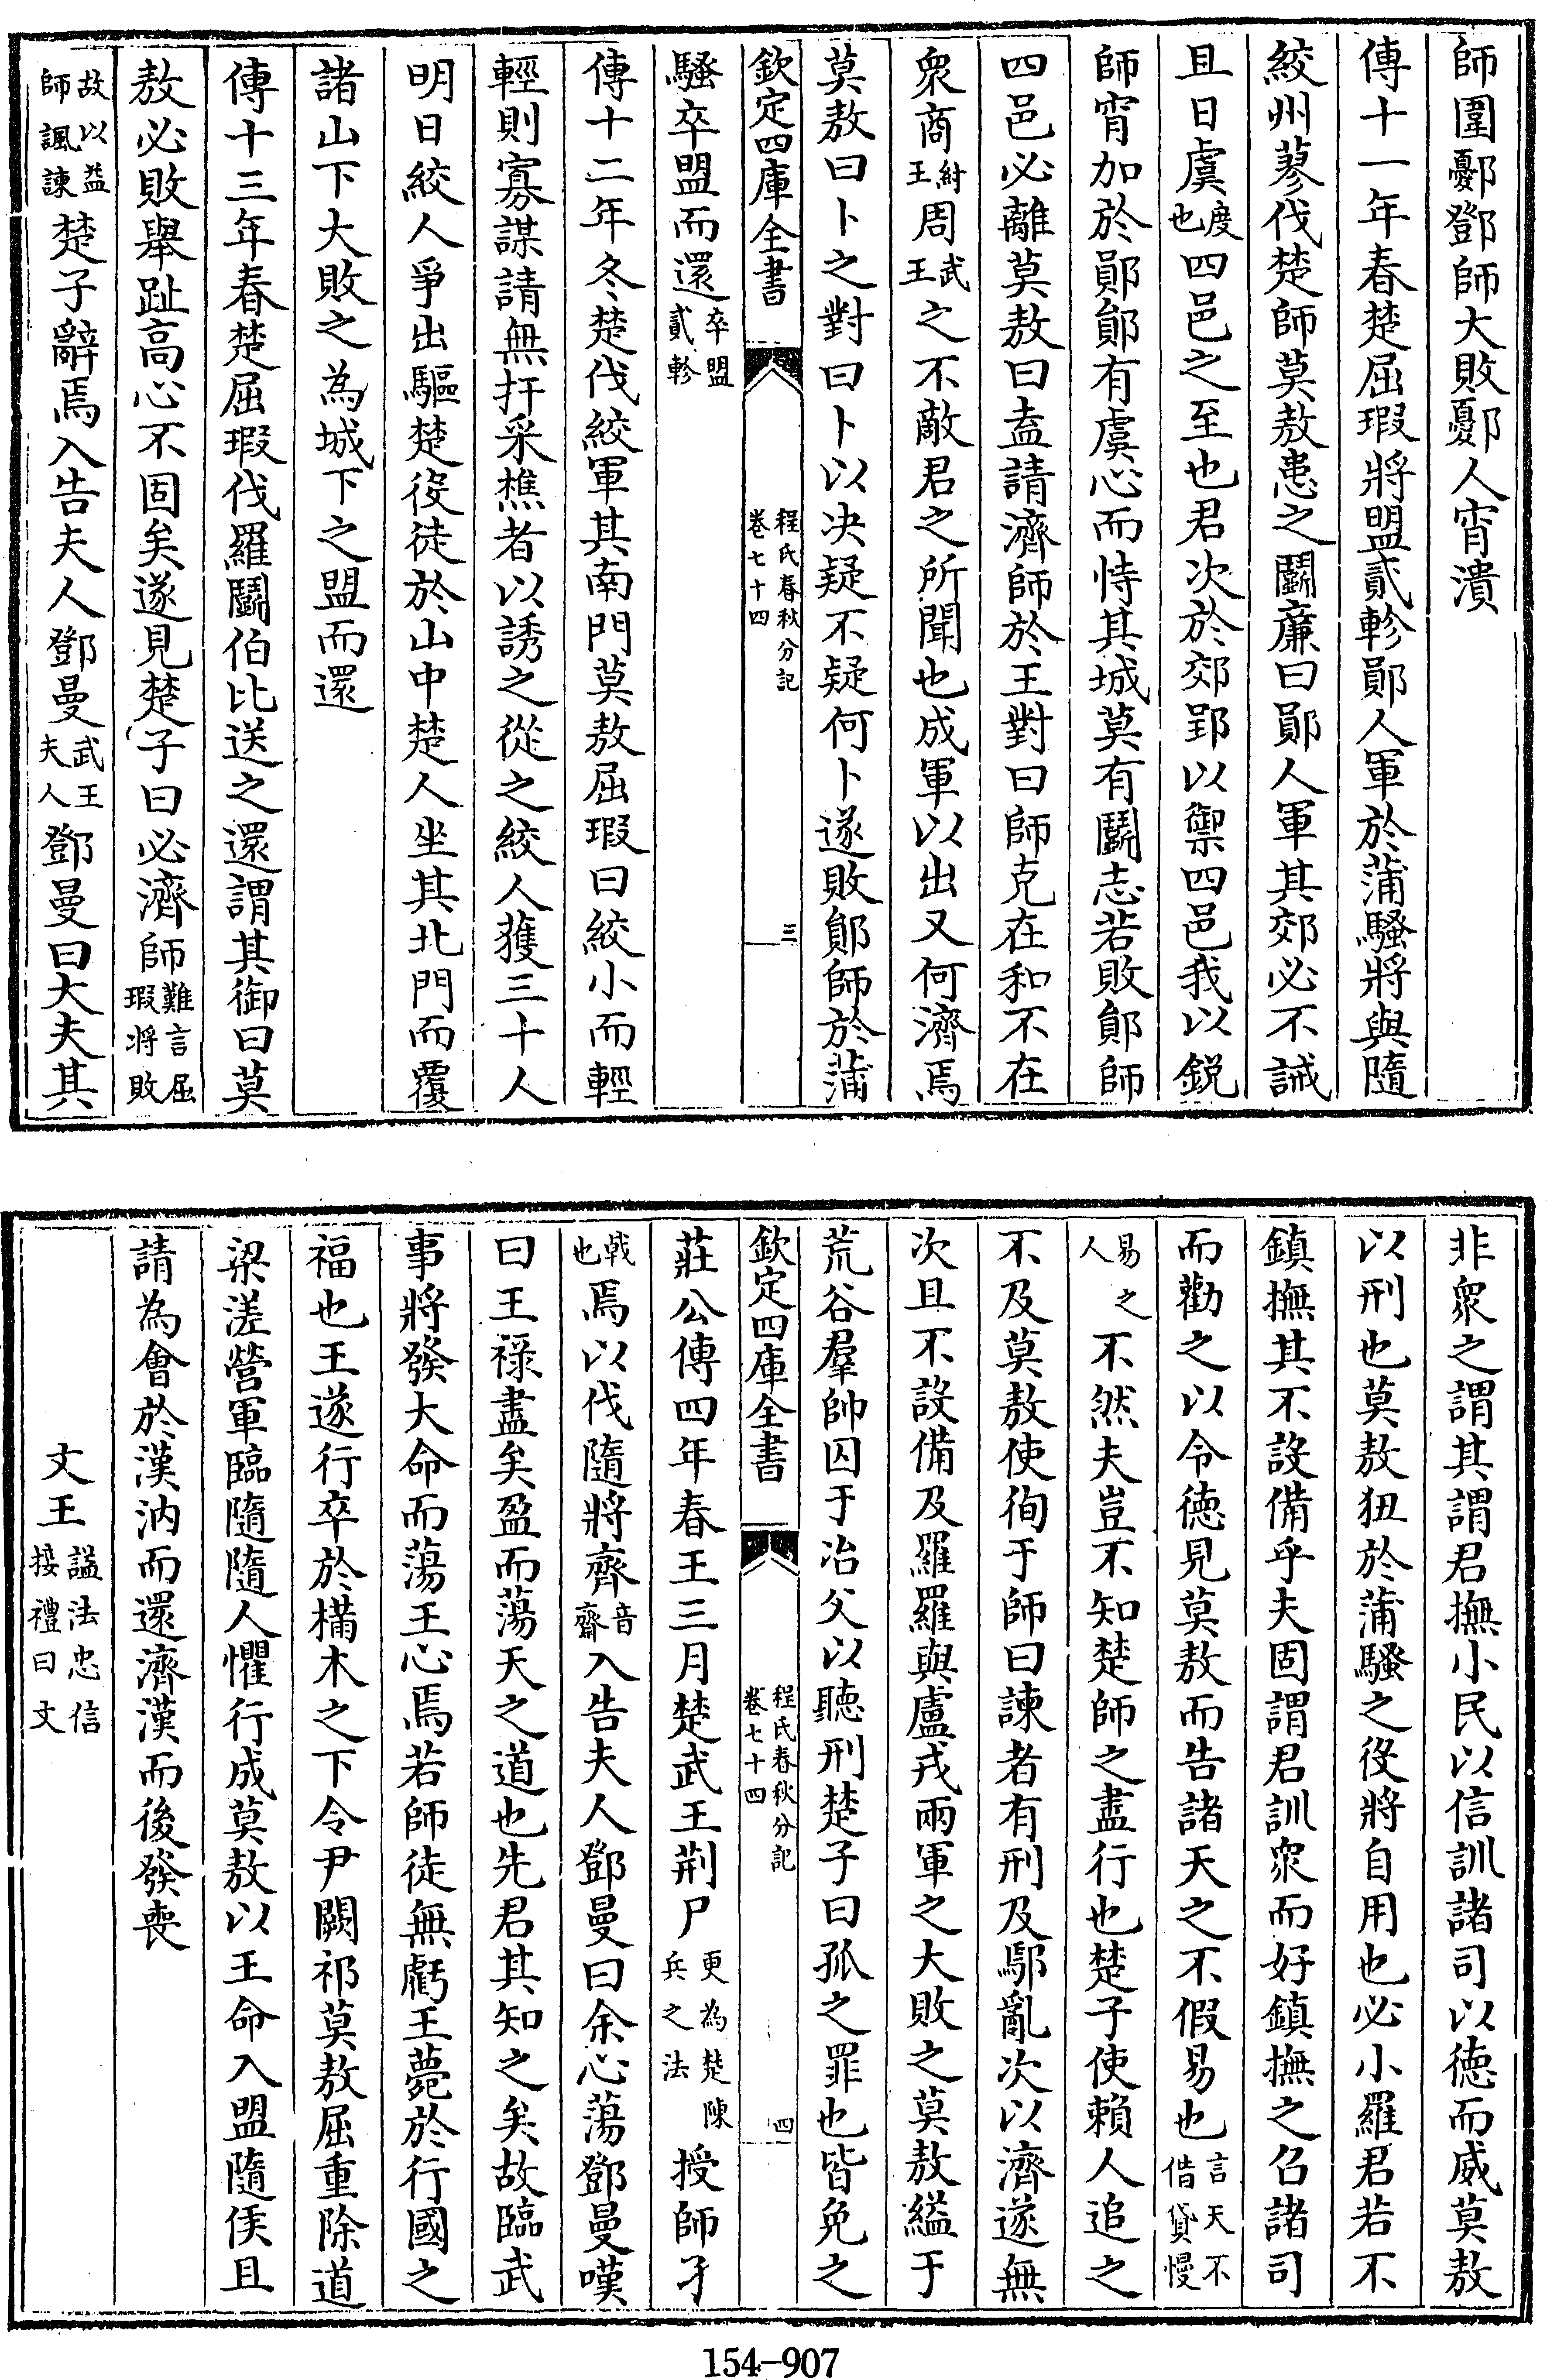 師圍鄾鄧師大敗鄾人宵潰
傳十一年春楚屈瑕將盟貳軫鄖人軍於蒲騷將與隨
絞州蓼伐楚師莫敖患之鬬廉曰鄖人軍其郊必不誡
且日虞度也四邑之至也君次於郊郢以禦四邑我以鋭
師宵加於鄖鄖有虞心而恃其城莫有鬬志若敗鄖師
四邑必離莫敖曰盍請濟師於王對曰師克在和不在
衆商紂王周武王之不敵君之所聞也成軍以出又何濟焉
莫敖曰卜之對曰卜以決疑不疑何卜遂敗鄖師於蒲
欽定四庫全書 程氏春秋分記卷七十四 三
騷卒盟而還卒盟貳軫
傳十二年冬楚伐絞軍其南門莫敖屈瑕曰絞小而輕
輕則寡謀請無扞采樵者以誘之從之絞人獲三十人
明日絞人爭出驅楚役徒於山中楚人坐其北門而覆
諸山下大敗之為城下之盟而還
傳十三年春楚屈瑕伐羅鬬伯比送之還謂其御曰莫
敖必敗舉趾高心不固矣遂見楚子曰必濟師難言屈瑕將敗
故以益師諷諫楚子辭焉入告夫人鄧曼武王夫人鄧曼曰大夫其
非衆之謂其謂君撫小民以信訓諸司以徳而威莫敖
以刑也莫敖狃於蒲騷之役將自用也必小羅君若不
鎮撫其不設備乎夫固謂君訓衆而好鎮撫之召諸司
而勸之以令徳見莫敖而告諸天之不假易也言天不借貸慢
易之人不然夫豈不知楚師之盡行也楚子使賴人追之
不及莫敖使徇于師曰諫者有刑及鄢亂次以濟遂無
次且不設備及羅羅與盧戎兩軍之大敗之莫敖縊于
荒谷羣帥囚于冶父以聽刑楚子曰孤之罪也皆免之
欽定四庫全書 程氏春秋分記卷七十四 四
莊公傳四年春王三月楚武王荆尸更為楚陳兵之法授師孑
戟也焉以伐隨將齊音齋入告夫人鄧曼曰余心蕩鄧曼嘆
曰王祿盡矣盈而蕩天之道也先君其知之矣故臨武
事將發大命而蕩王心焉若師徒無虧王薨於行國之
福也王遂行卒於樠木之下令尹鬭祁莫敖屈重除道
梁溠營軍臨隨隨人懼行成莫敖以王命入盟隨侯且
請為會於漢汭而還濟漢而後發喪
文王諡法忠信接禮曰文
154-907